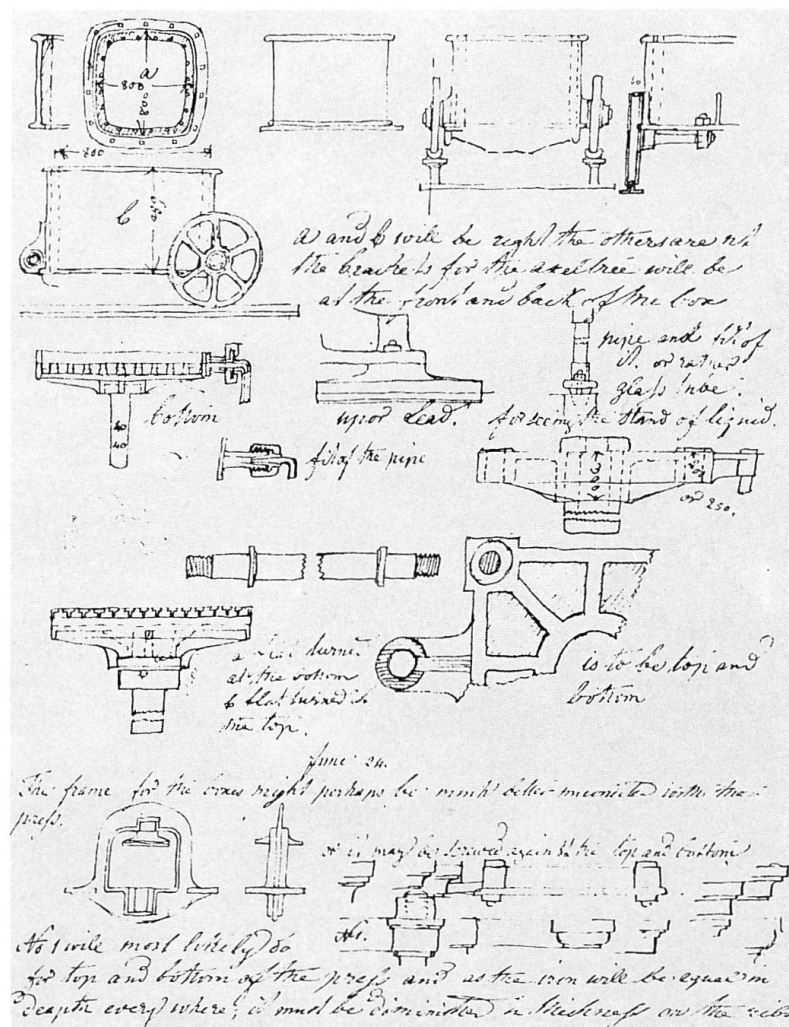 a
800
800
800
b
850
a and b will be right the others are not
the brackets for the axeltree will be
at the front and back of the box
pipe and fit of
it. or rather
glass tube.
bottom
40
40
upor Lead.
for seeing the stand of liquid.
fit of the pipe
200
or 250.
flat turned
at the bottom
b flat turned is
the top.
is to be top and
bottom
June 24.
The frame for the boxes might perhaps be much better with the
press.
or it may be screwed against the top and bottom
No 1.
No 1 will most likely do
for top and bottom of the press and as the iron will be equal in
deapth every where, it must be diminisht in thickness on the ribs